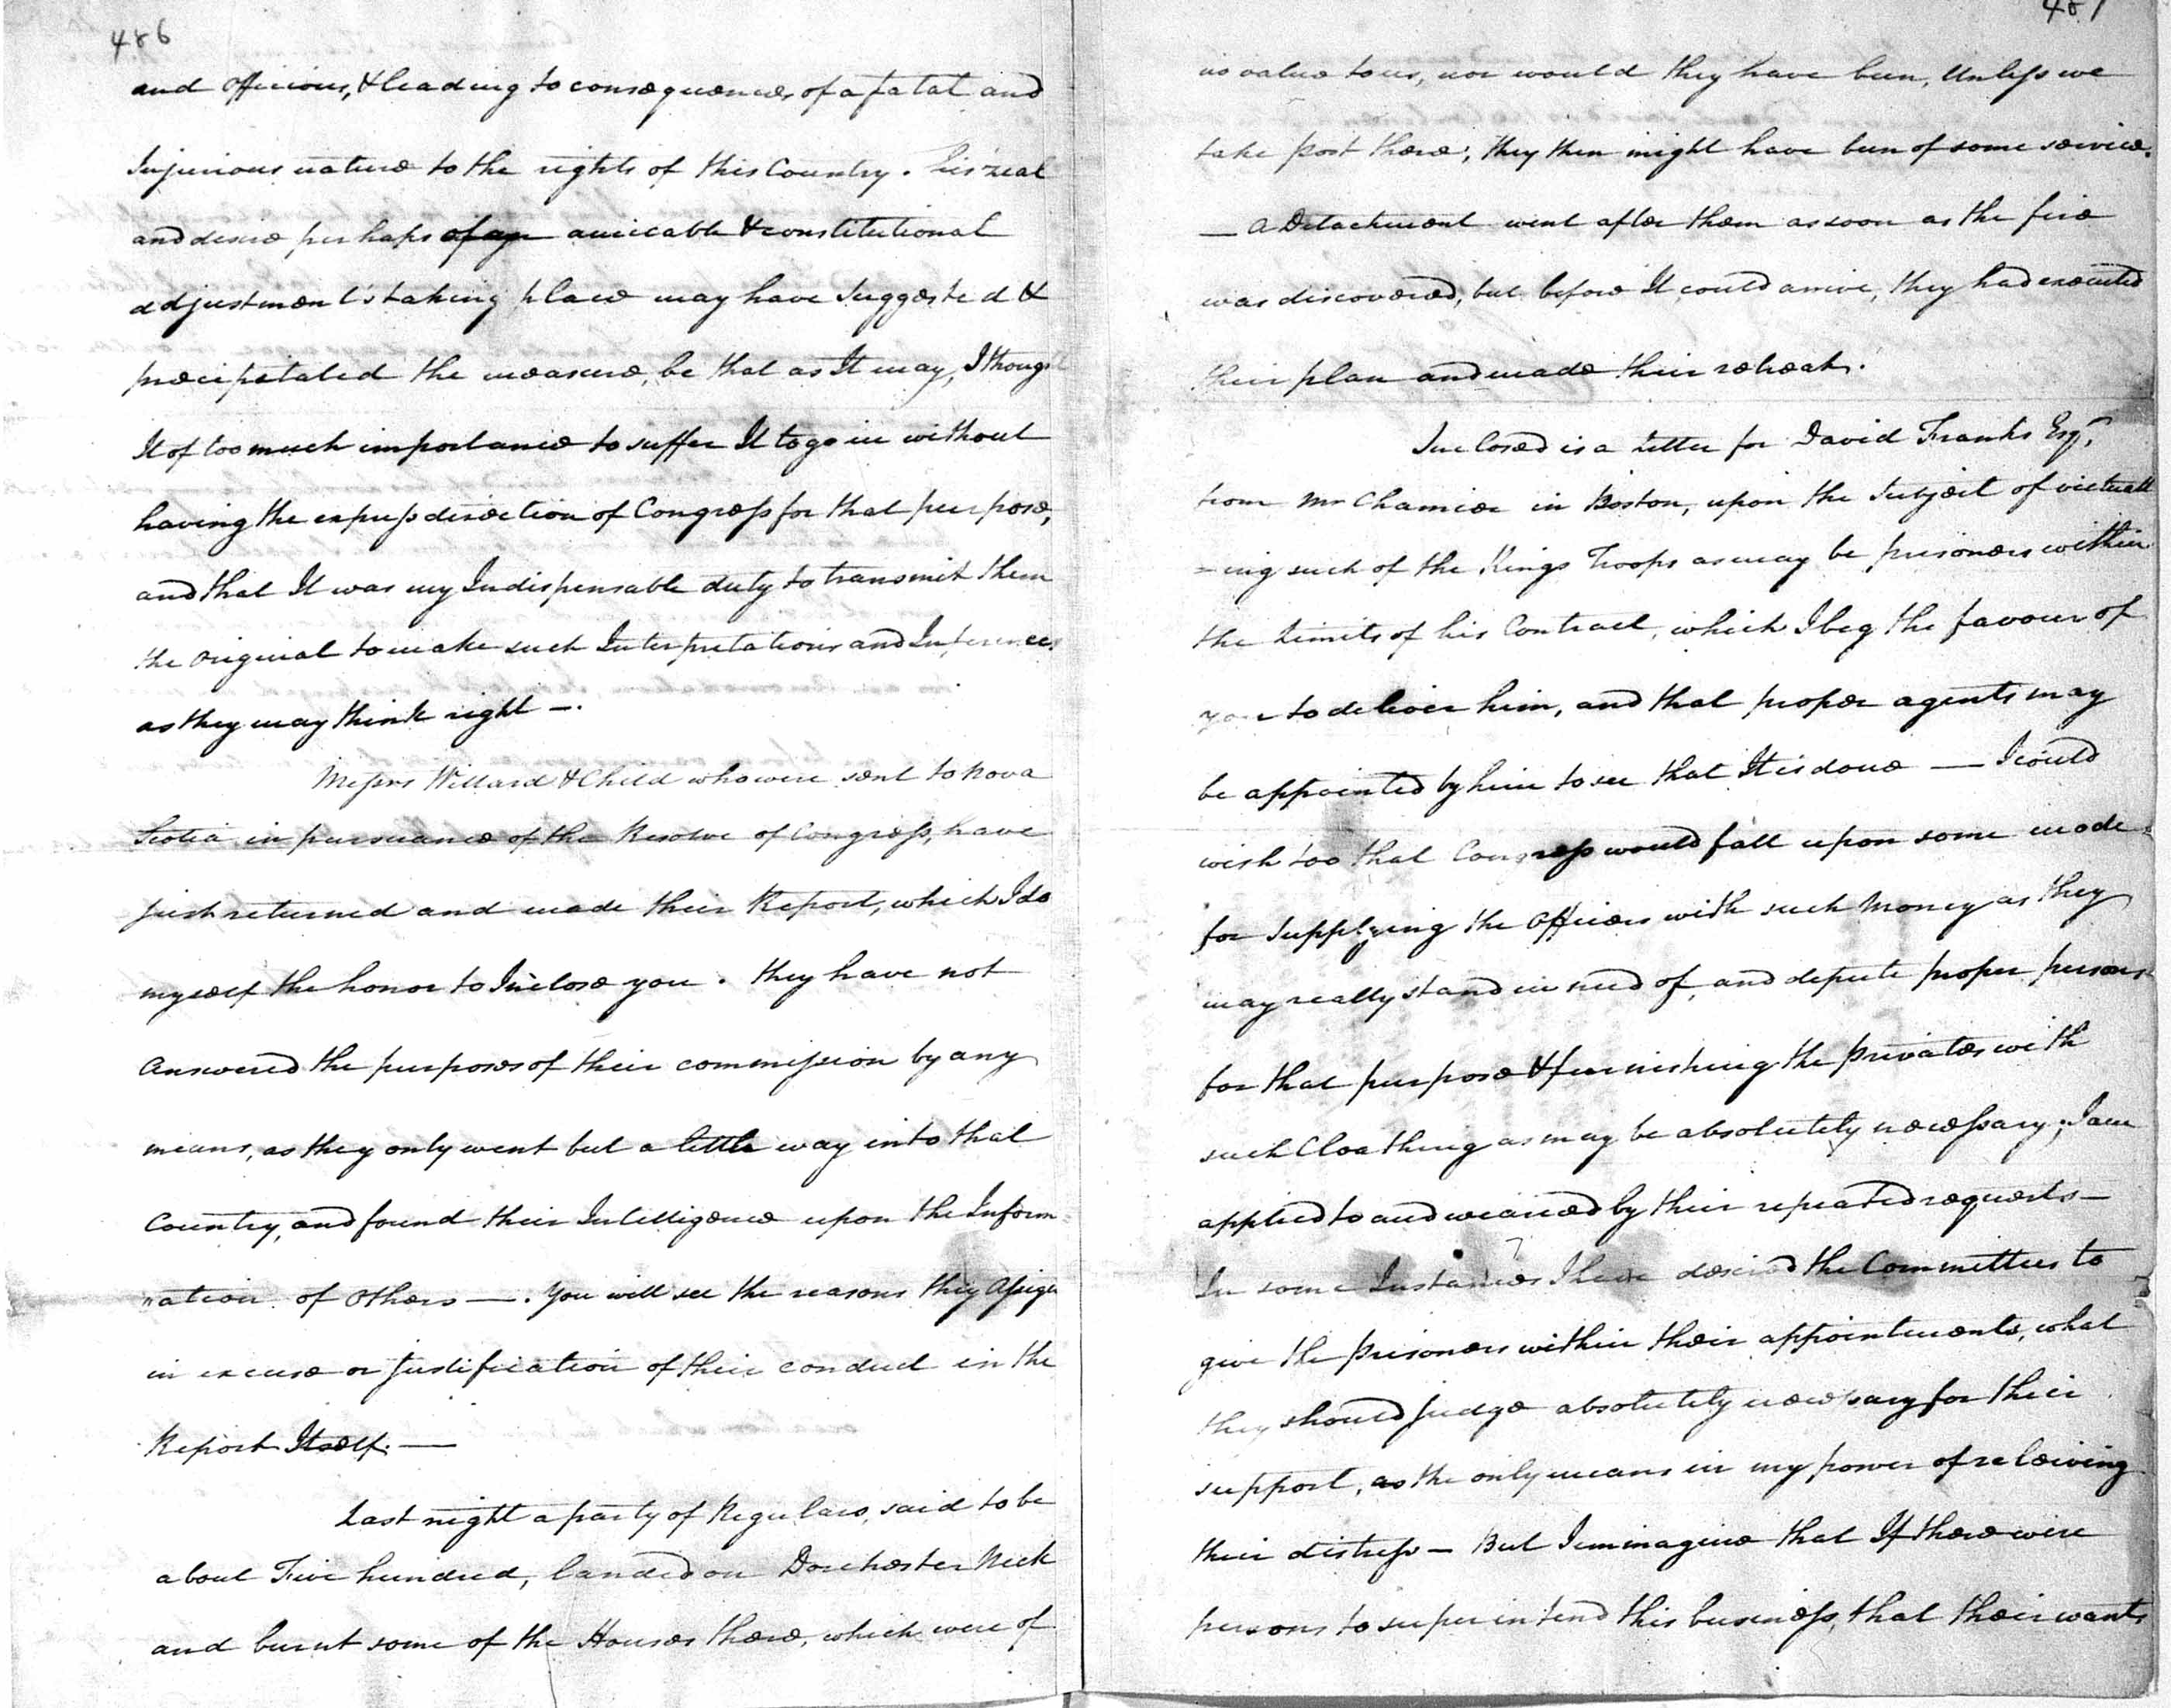 486
and officious, & leading to consequences of a fatal and
Injurious nature to the rights of this Country. his zeal
and desire perhaps of an amicable & constitutional
adjustment's taking place may have suggested &
precipitated the measure, be that as It may, I thought
It of too much importance to suffer It to go in without
having the express direction of Congress for that purpose,
and that It was my Indispensable duty to transmit them
the original to make such Interpretations and Inferences
as they may think right —.
Messrs Willard & Child who were sent to Nova
Scotia in pursuance of the Resolve of Congress, have
just returned and made their Report, which I do
myself the honor to Inclose you. they have not
answered the purposes of their commission by any
means, as they only went but a little way into that
Country, and found their Intelligence upon the Inform=
=ation of others —. You will see the reasons they assign
in excuse or justification of their conduct in the
Report Itself. —
Last night a party of Regulars, said to be
about Five hundred, landed on Dorchester Neck
and burnt some of the Houses there, which were of
487
no value to us, nor would they have been, Unless we
take post there; they then might have been of some service.
— a Detachment went after them as soon as the fire
was discovered, but before It could arrive, they had executed
their plan and made their retreat.
Inclosed is a Letter for David Franks Esqr.
from Mr Chamier in Boston, upon the Subject of victuall
=ing such of the Kings Troops as may be prisoners within
the Limits of his Contract, which I beg the favour of
you to deliver him, and that proper agents may
be appointed by him to see that It is done — I could
wish too that Congress would fall upon some mode
for Supplying the Officers with such Money as they
may really stand in need of, and depute proper persons
for that purpose & furnishing the privates with
such Cloathing as may be absolutely necessary; I am
applied to and wearied by their repeated requests —
In some Instances I have desired the Committees to
give the prisoners within their appointments, what
they should judge absolutely necessary for their
support, as the only means in my power of releiving
their distress — But I immagine that If there were
persons to superintend this business, that their wants